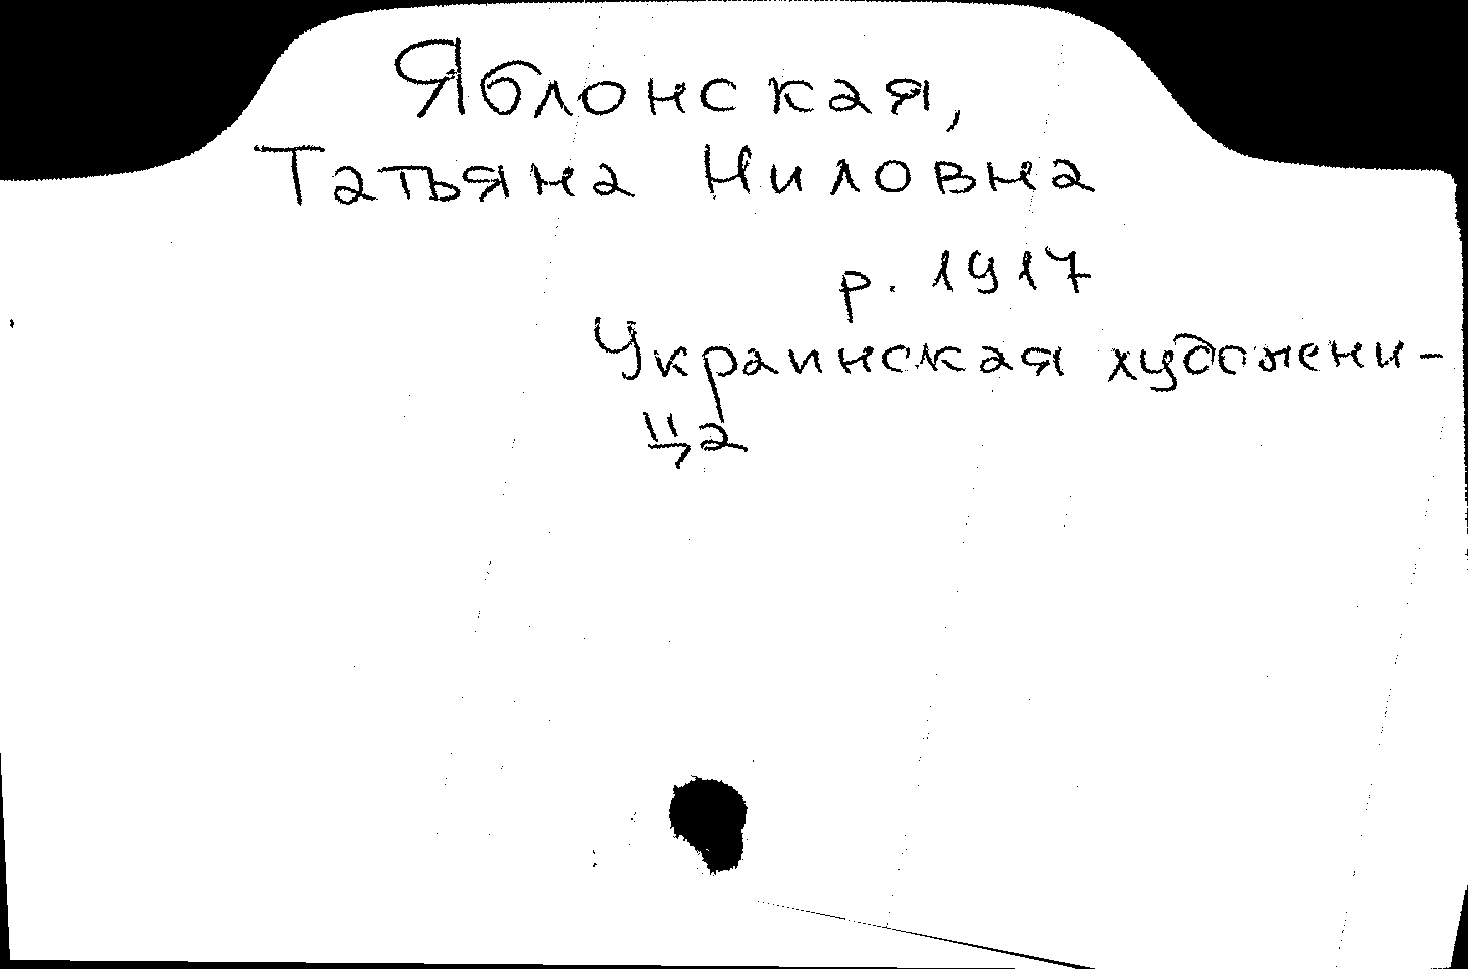 Яблонская,
Татьяна Ниловна
р. 1917
Украинская художени-
ца